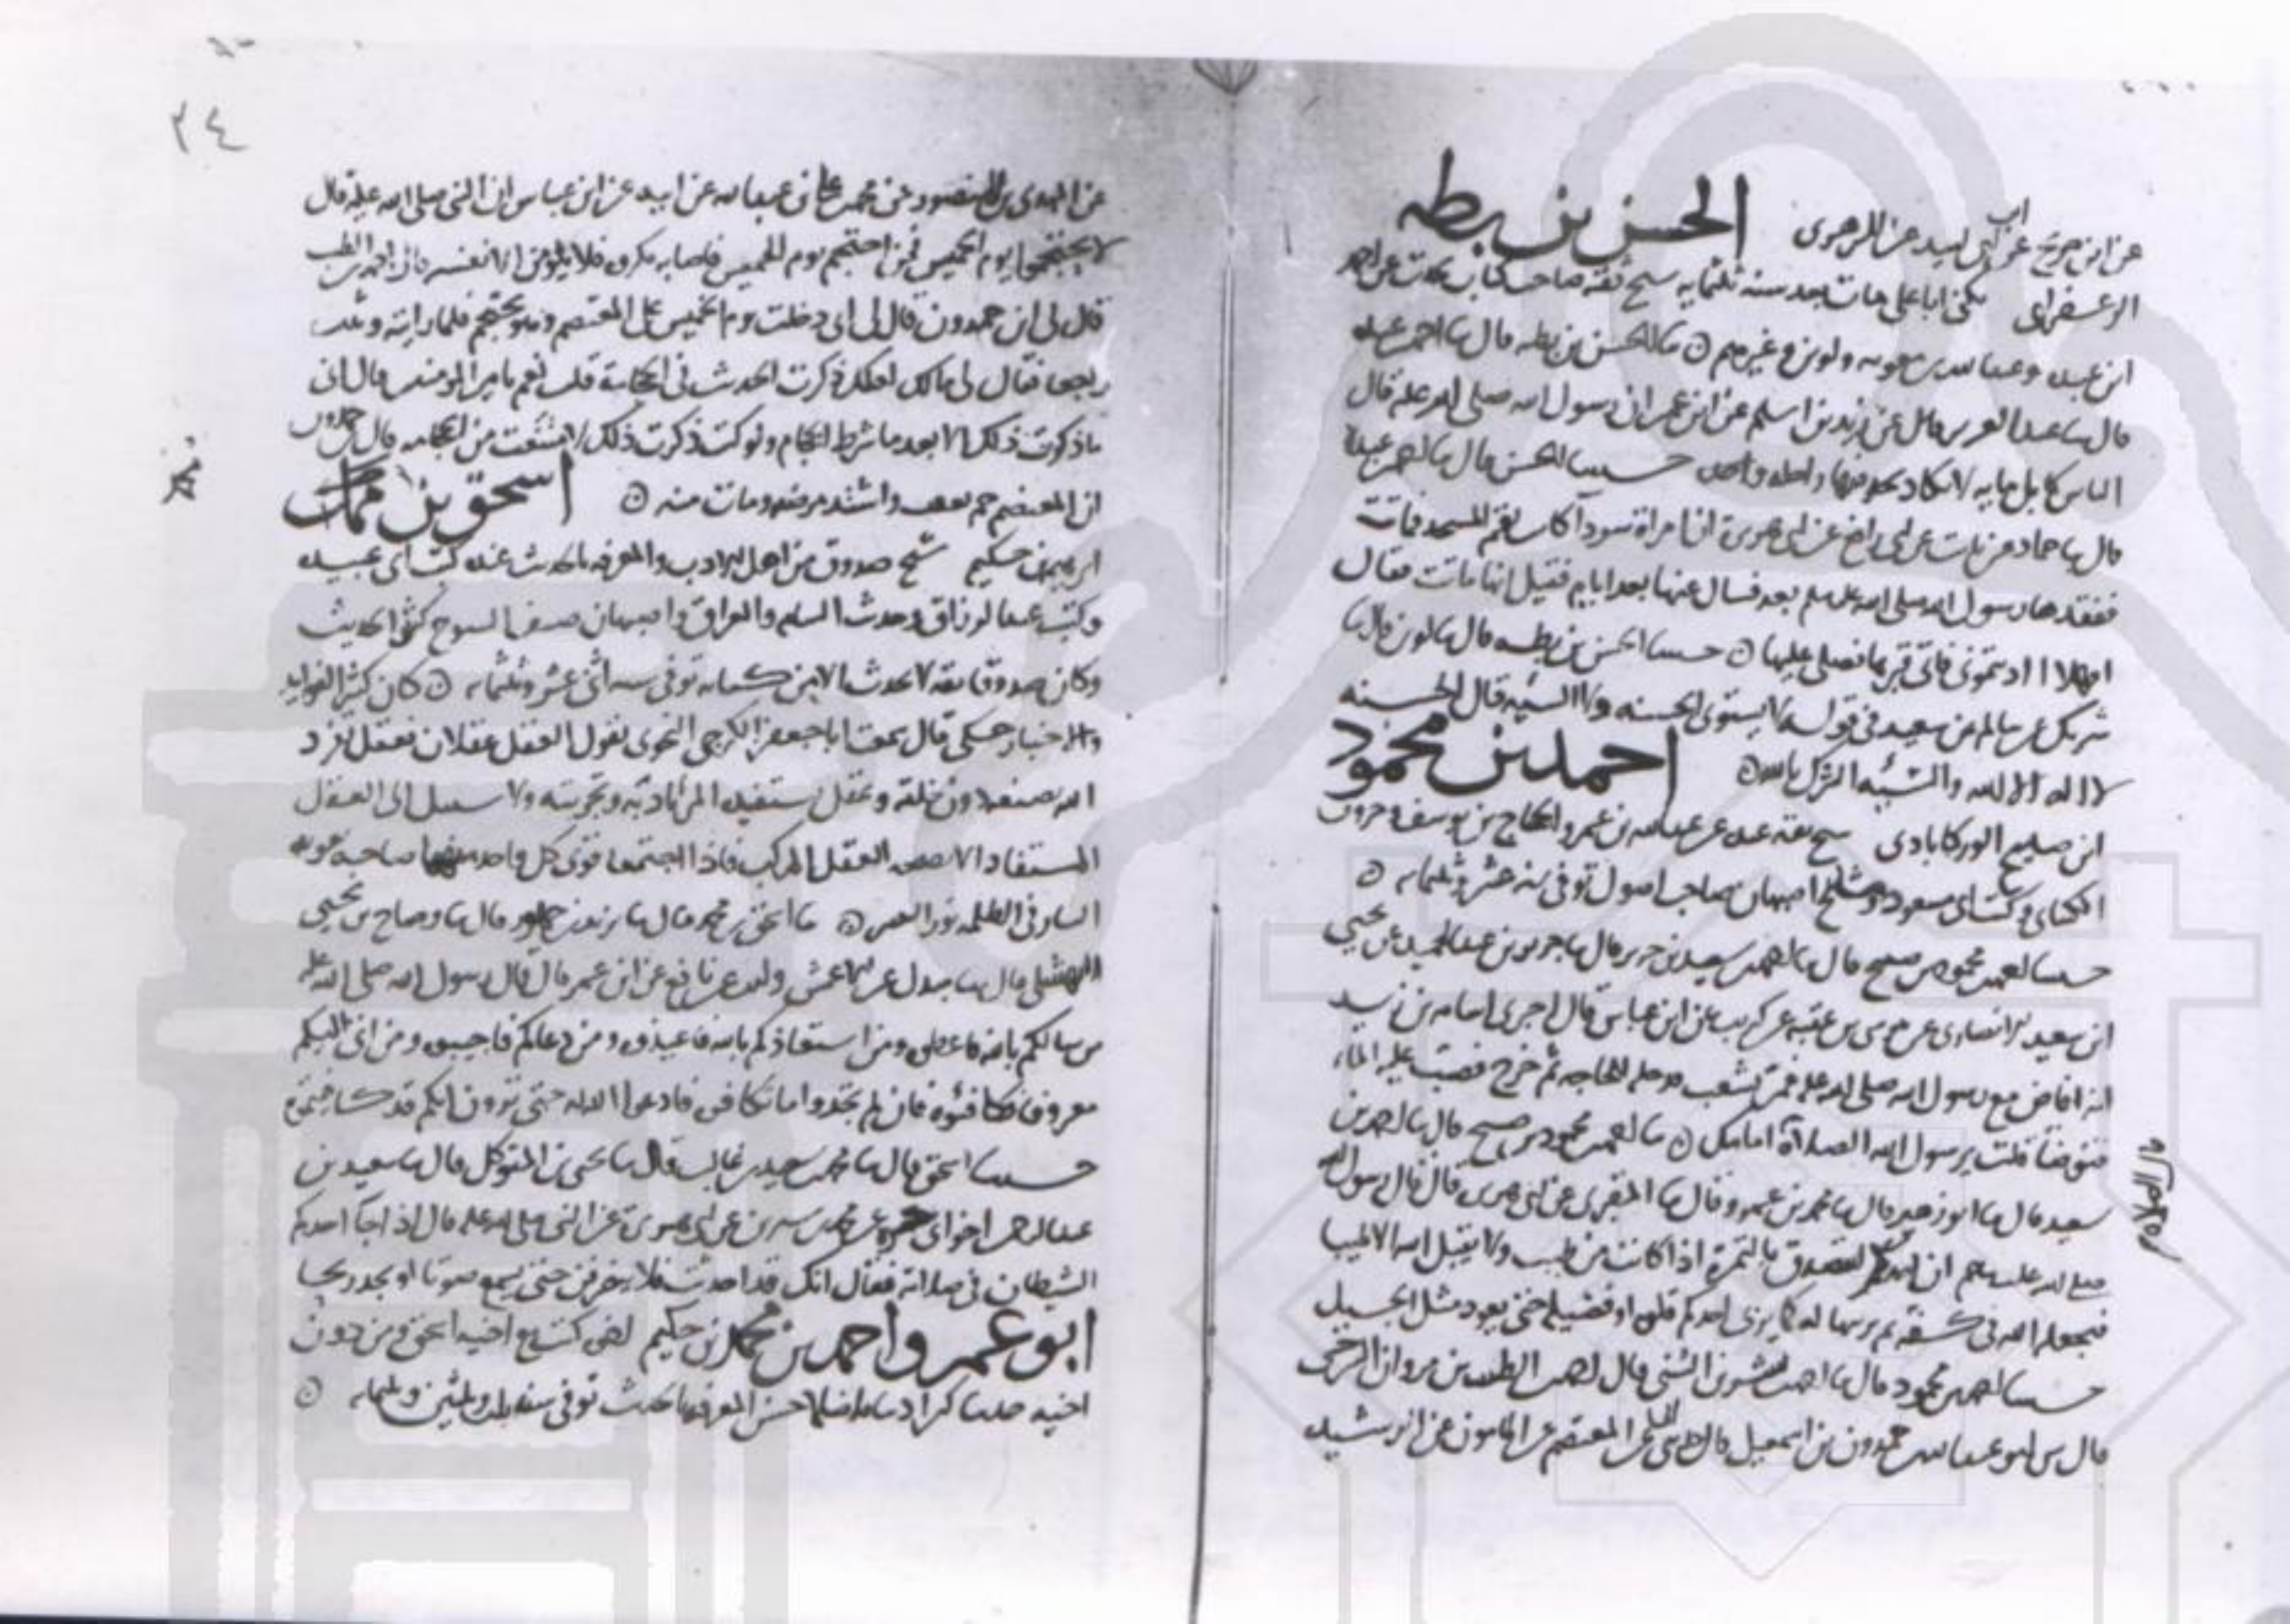 عن ابن جريج عن ابن ابي لبيد عن الزهري الحسن بن بطه
الزعفراني يكنى ابا علي مات بعد سنة ثلثمايه شيخ ثقة صاحب كتاب يحدث عن احمد
ابن عبده وعبد الله بن معويه ولوين وغيرهم ۞ ثنا الحسن بن بطه قال ثنا احمد بن عبده
قال ثنا عبد العزيز قال عن زيد بن اسلم عن ابن عمر ان رسول الله صلى الله عليه قال
الناس كابل مايه لا تكاد تجد فيها راحله واحده حدثنا الحسن قال ثنا احمد بن عبدة
قال ثنا حماد عن ثابت عن ابي رافع عن ابي هريرة ان امراة سودآ كانت تقم المسجد فماتت
ففقدها رسول الله صلى الله عليه وسلم بعد فسال عنها بعد ايام فقيل انها ماتت فقال
افهلا اذنتموني فاتى قبرها فصلى عليها ۞ حدثنا الحسن بن بطه قال ثنا لوين قال ثنا
شريك عن سالم عن سعيد في قوله لا يستوى الحسنه ولا السيه قال الحسنه
لا اله الا الله والسيئه الشرك بالله ۞ احمد بن محمود
ابن صبيح الوركابادي شيخ ثقه عنده عن عبد الله بن عمر والحجاج بن يوسف وهرون
الكتاني وكتب ابي مسعود ومشايخ اصبهان صاحب اصول توفي سنه عشر وثلثمايه ۞
حدثنا احمد بن محمود بن صبيح قال ثنا احمد بن سعيد بن جرير قال ثنا جرير بن عبد الحميد عن يحيى
ابن سعيد الانصاري عن موسى بن عقبه عن كريب عن ابن عباس قال اخبرني اسامه بن زيد
انه افاض مع رسول الله صلى الله عليه فمر بشعب فدخله لحاجه ثم خرج فصببت عليه الماء
فتوضا فقلت يرسول الله الصلاة قال امامك ۞ ثنا احمد بن محمود بن صبيح قال ثنا احمد بن
سعيد قال ثنا ابو زهير قال ثنا محمد بن عمرو قال ثنا المقبري عن ابي هريرة قال قال رسول الله
صلى الله عليه وسلم ان احدكم ليتصدق بالتمرة اذا كانت من طيب ولا يقبل الله الا طيبا
فيجعلها الله في كفه ثم يربيها له كما يربي احدكم فلوه او فصيله حتى يعود مثل الجبل
حدثنا احمد بن محمود قال ثنا احمد بن بشر بن المثنى قال احمد بن الطيب بن مروان السرخسي
قال ابو عبد الله حمدون بن اسمعيل قال المعتصم عن المامون عن الرشيد
٢٤
عن المهدي بن المنصور عن محمد بن علي بن عبد الله عن ابيه عن ابن عباس ان النبي صلى الله عليه قال
لا تحتجموا يوم الخميس فمن احتجم يوم الخميس فاصابه مكروه فلا يلومن الا نفسه قال احمد بن الطيب
قال لي ابن حمدون قال لي ابي دخلت يوم الخميس على المعتصم وهو يحتجم فلما رايته وثبت
فقال لي مالك لعلك ذكرت الحديث في الحجامة قلت نعم يا امير المومنين قال اني
ما ذكرت ذلك الا بعد ما شرط الحجام ولو كنت ذكرت ذلك لامتنعت من الحجامه قال حمدون
ان المعتصم حم بعده واشتد مرضه ومات منه ۞ اسحق بن ممك
ابرهيم بن حكيم شيخ صدوق من اهل الادب والمعرفه بالحديث عنده كتب ابي عبيده
وكتب عبد الرزاق وحديث الشام والعراق واصبهان صنف الشيوخ كثير الحديث
وكان صدوقا ثقه لا يحدث الا من كتابه توفي سنه اثنتي عشر وثلثمايه ۞ كان كثير الفوايد
والاخبار حكى قال سمعت ابا جعفر الكرجي النحوي يقول العقل عقلان فعقل تفرد
الله بصنعه دون خلقه وعقل يستفيده المرء بادبه وتجربته ولا سبيل الى العقل
المستفاد الا بصحه العقل المركب فاذا اجتمعا قوى كل واحد منهما صاحبه
النار في الظلمه نور البصر ۞ ثنا اسحق بن محمد قال ثنا قال ثنا وضاح بن يحيى
النهشلي قال ثنا مندل عن الاعمش وليث عن نافع عن ابن عمر قال قال رسول الله صلى الله عليه
من سالكم بالله فاعطوه ومن استعاذكم بالله فاعيذوه ومن دعاكم فاجيبوه ومن اتى اليكم
معروفا فكافئوه فان لم تجدوا ما تكافوه فادعوا الله له حتى ترون انكم قد كافيتموه
حدثنا اسحق قال ثنا محمد بن سعيد بن غالب قال ثنا يحيى بن المتوكل قال ثنا سعيد بن
عبد الرحمن اخو ابي حره عن محمد بن سيرين عن ابي هريرة عن النبي صلى الله عليه قال اذا جآ احدكم
الشيطان في صلاته فقال انك قد احدثت فلا يخرجن حتى يسمع صوتا او يجد ريحا
ابو عمرو احمد بن محمد بن حكيم كتب مع اخيه اسحق ومن دون
اخيه كان اديبا فاضلا حسن المعرفه بالحديث توفي سنه ثلث وثلثين وثلثمايه ۞